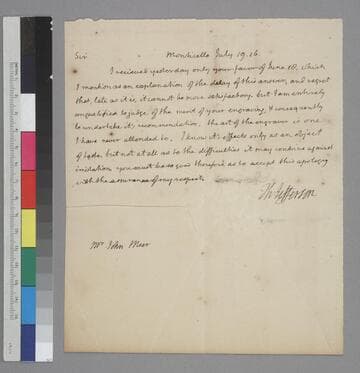 Sir Monticello July 19. 16.
I recieved yesterday only your favor of June 10, which
I mention as an explanation of the delay of this answer, and regret
that, late as it is, it cannot be more satisfactory. but I am entirely
unqualified to judge of the merit of your engraving, & consequently
to undertake it's recommendation. the art of the engraver is one
I have never attended to. I know it's effects only as an object
of taste, but not at all as to the difficulties it may combine against
imitation. you must be so good therefore as to accept this apology
with the assurance of my respect.
Th: Jefferson
Mr John Meer